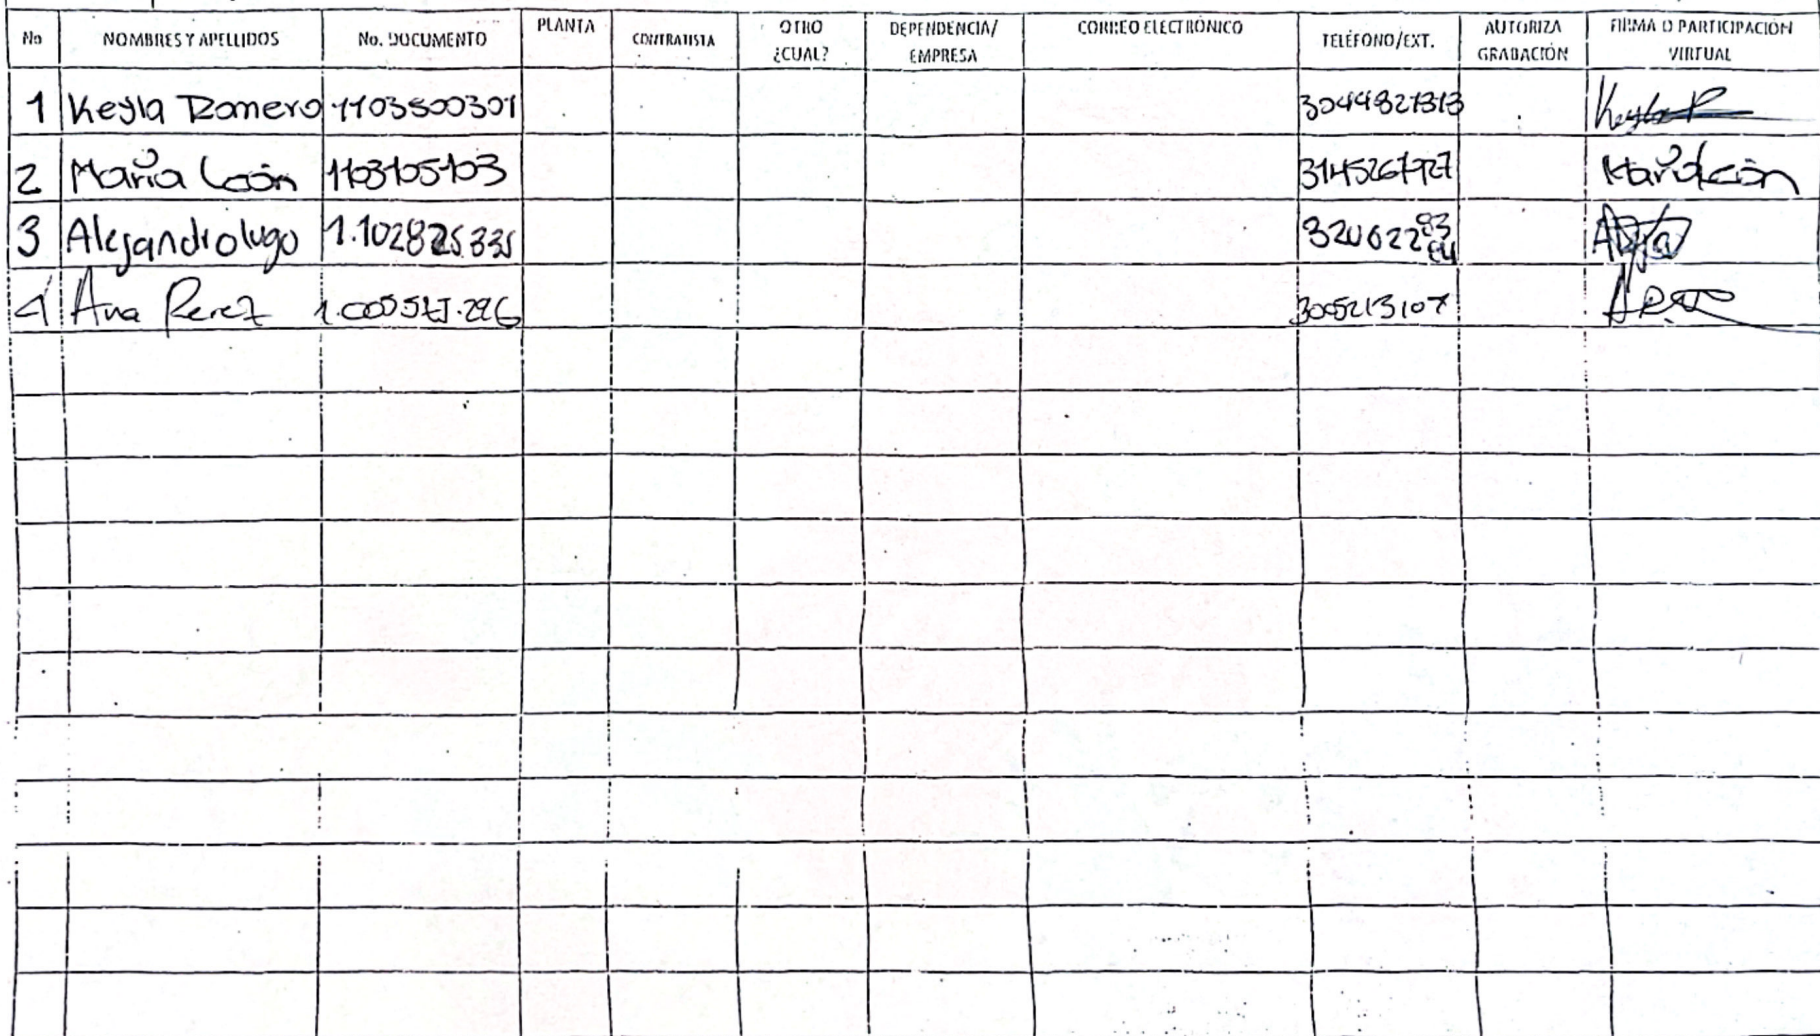 No NOMBRES Y APELLIDOS No. DOCUMENTO PLANTA CONTRATISTA OTRO ¿CUAL? DEPENDENCIA/ EMPRESA CORREO ELECTRÓNICO TELÉFONO/EXT. AUTORIZA GRABACIÓN FIRMA O PARTICIPACIÓN VIRTUAL
1 Keyla Romero 1103500301 3044821313 Keyla R
2 María León 1103105103 3145267727 María León
3 Alejandro lugo
4 Ana Perez 3005213107